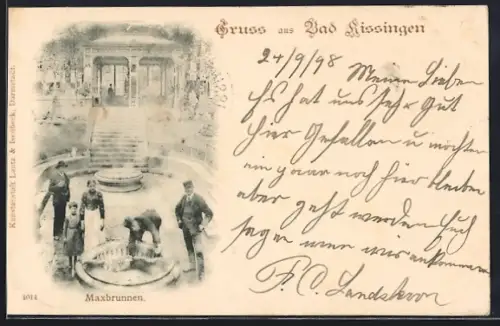 Gruss aus Bad Kissingen
24/9/98 Meine Lieben
Es hat uns sehr Gut
hier Gefallen u möchten
ein paar noch hier bleiben
aber geht werden Euch
sagen wenn wir ankommen
F. C. Landskron
Kunstanstalt Lautz & Isenbeck, Darmstadt.
4014
Maxbrunnen.